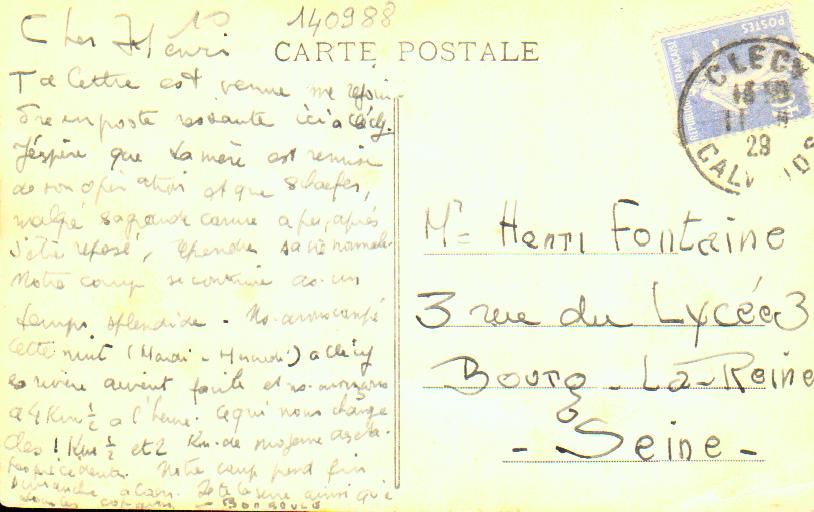 140988
CARTE POSTALE
POSTES
CLECY
11
29
CALVADOS
Cher Henri
Ta lettre est venue me rejoin-
dre en poste restante ici a Clécy.
J'espère que ta mère est remise
de son opération et que Schaefer,
malgré sa grande carure a pu, après
s'être reposé, reprendre sa vie normale.
Notre camp se continue un
temps splendide. Ns. avons campé
cette nuit (Mardi - Mercredi) a Clécy
rivière devient facile et ns. avançons
a 4 Km ½ a l'heure. Ce qui nous change
des 1 Km ½ et 2 Km. de moyenne
précédents. Notre camp prend fin
Dimanche a Caen. Je te serre ainsi qu'à
tous les copains
Mr. Henri Fontaine
3 rue du Lycée 3
Bourg-La-Reine
- Seine -